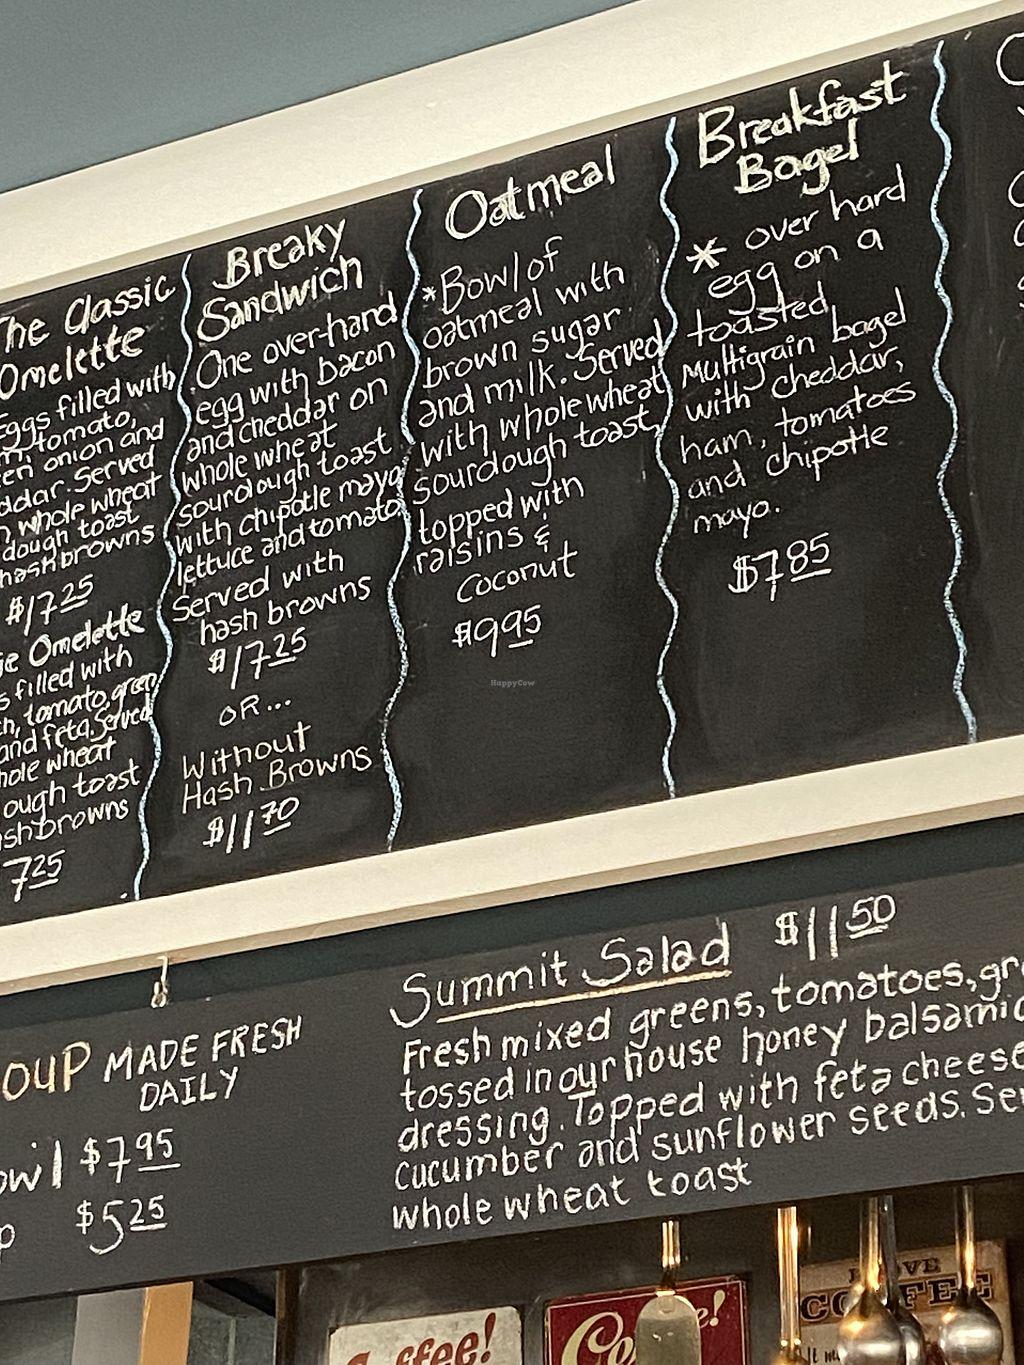 The Classic
Omelette
Eggs filled with
tomato,
onion and
Served
whole wheat
toast
hashbrowns
$17.25
Omelette
filled with
tomato, green
and feta. Served
wheat
toast
7.25
Breaky
Sandwich
One over-hard
egg with bacon
and cheddar on
whole wheat
sourdough toast
with chipotle mayo
lettuce and tomato.
Served with
hash browns
$17.25
OR...
Without
Hash Browns
$11.70
Oatmeal
*Bowl of
oatmeal with
brown sugar
and milk. Served
with whole wheat
sourdough toast,
topped with
raisins &
coconut
$9.95
Breakfast
Bagel
* over hard
egg on a
toasted
Multigrain bagel
with cheddar,
ham, tomatoes
and chipotle
mayo.
$7.85
HappyCow
MADE FRESH
DAILY
$7.95
$5.25
Summit Salad $11.50
Fresh mixed greens, tomatoes,
tossed in our house honey balsamic
dressing. Topped with feta cheese
cucumber and sunflower seeds.
whole wheat toast
Coffee!
LOVE
COFFEE